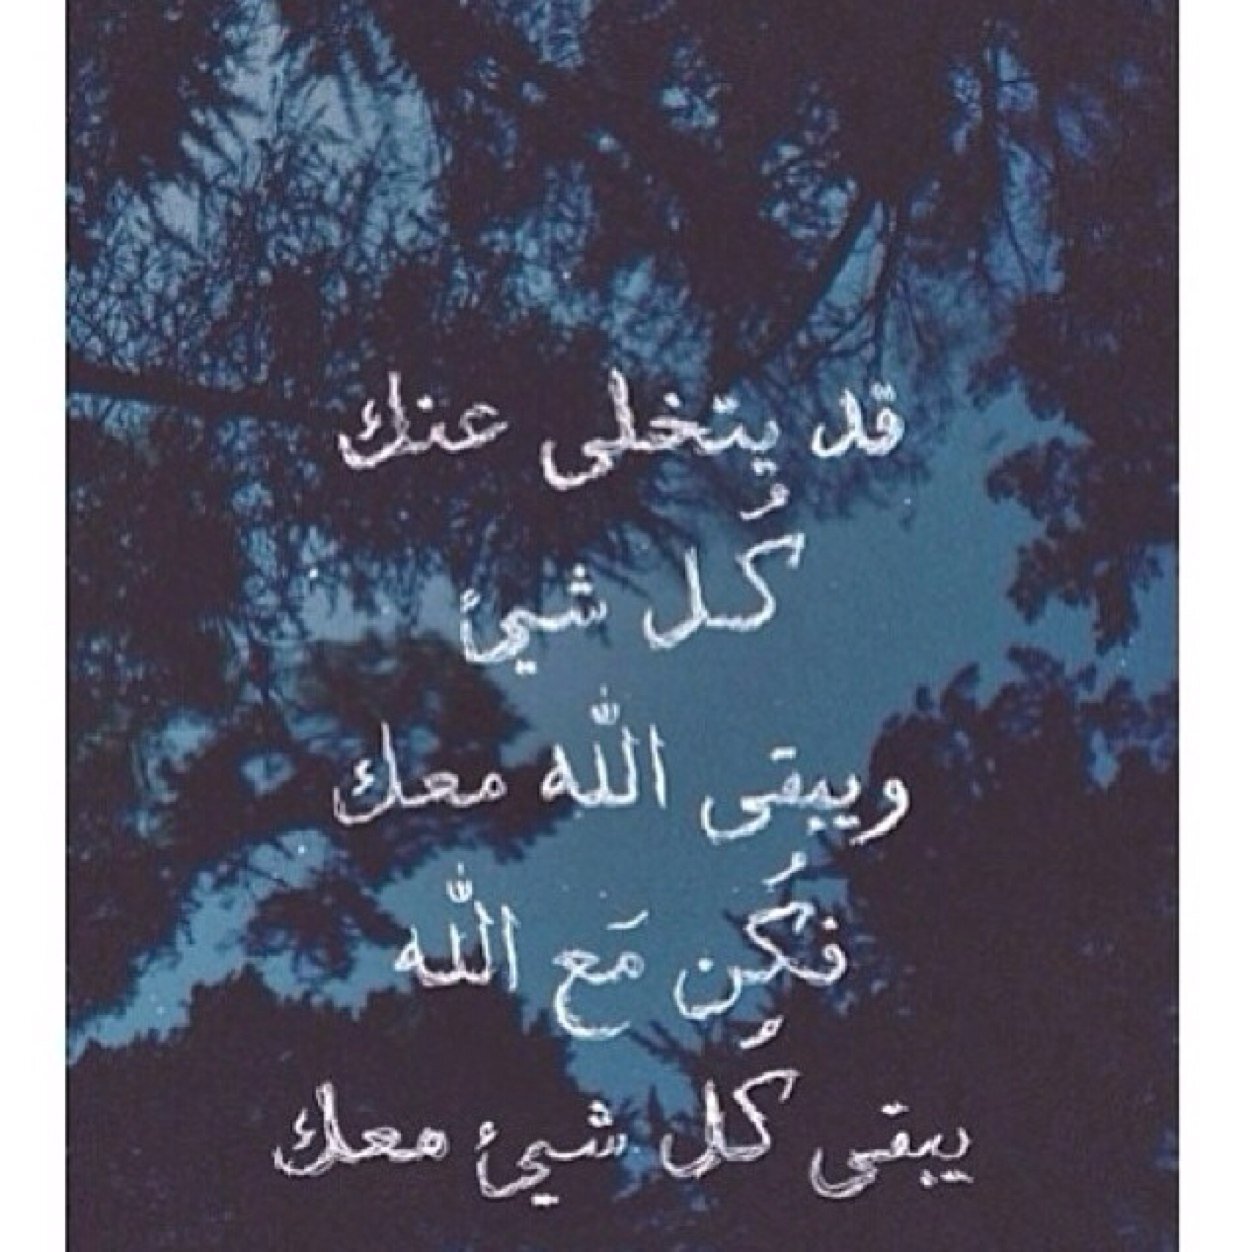 قد يتخلى عنك
كُل شيئ
ويبقى الله معك
فكُن مَع الله
يبقى كُل شيئ معك